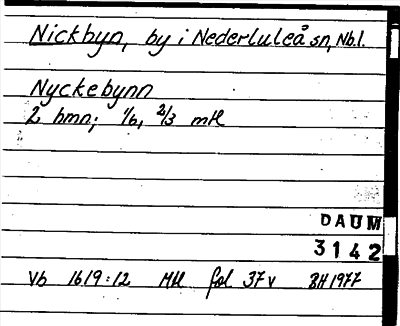 Nickbyn, by i Nederluleå sn, Nb.l.
Nyckebynn
2 bmn; 1/6, 2/3 mtl
DAUM
3142
Vb 1619:12 Mtl fol 37v BH 1977